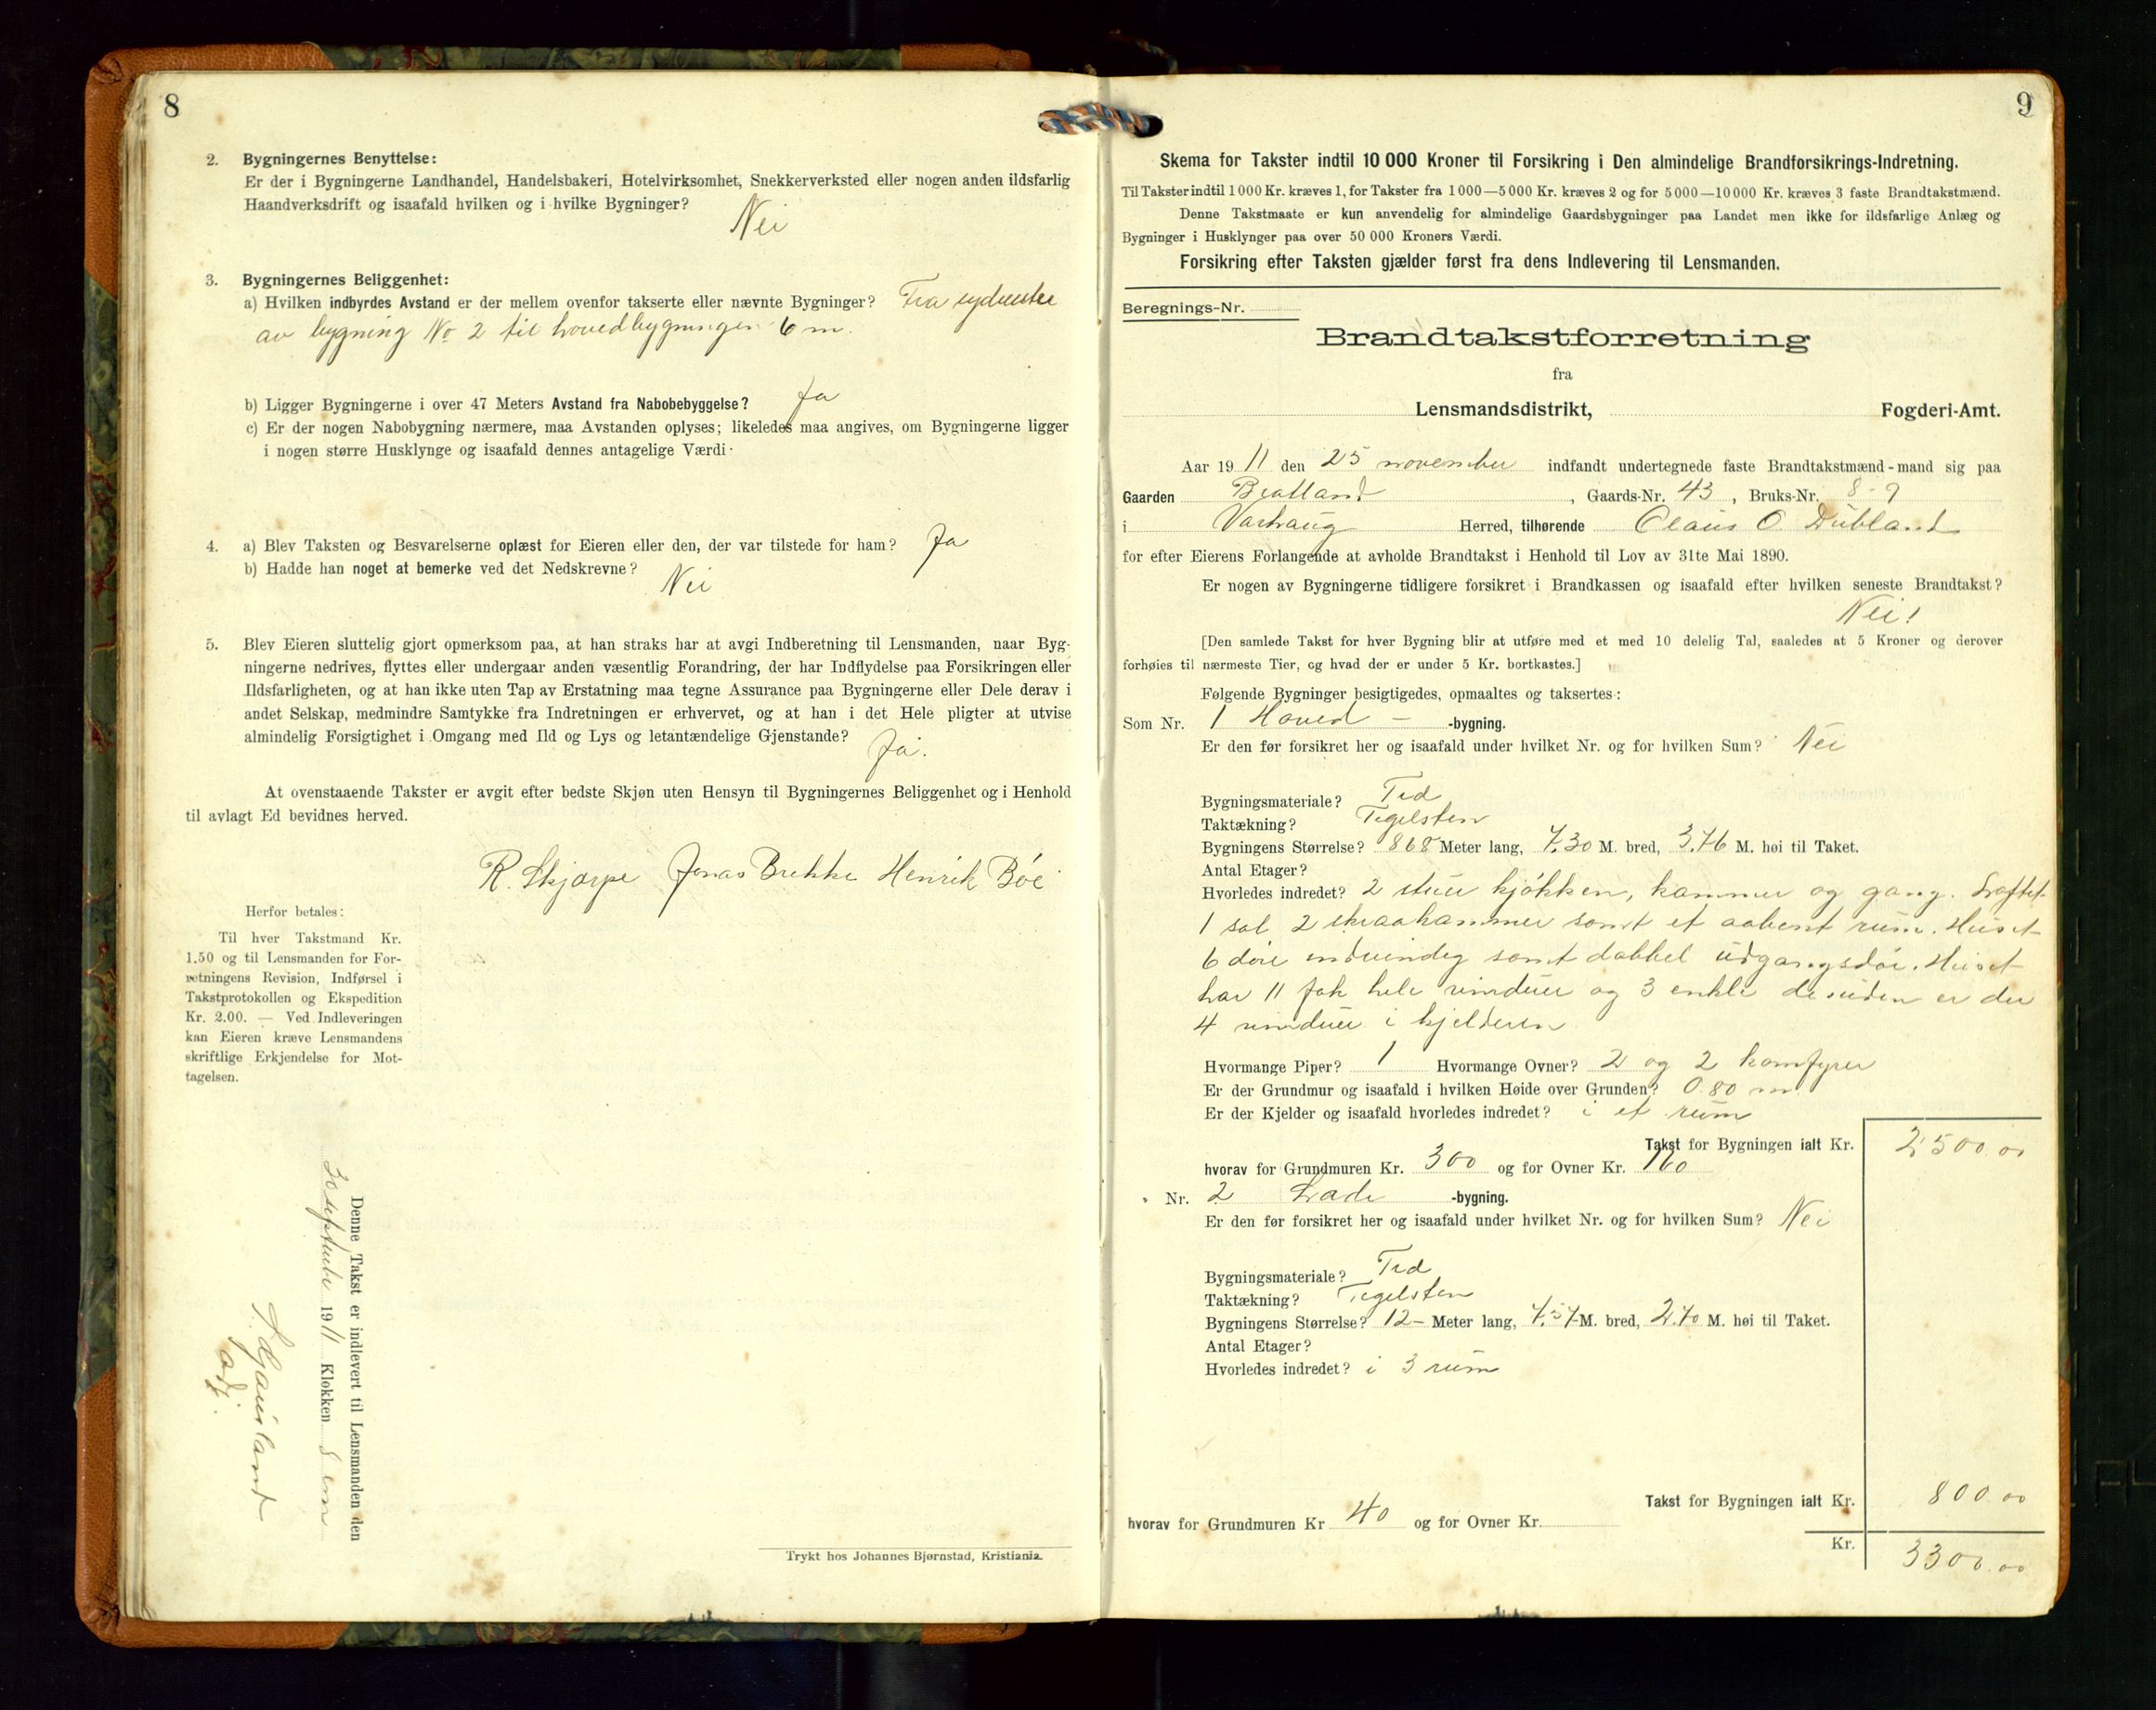 8
2. Bygningernes Benyttelse:
Er der i Bygningerne Landhandel, Handelsbakeri, Hotelvirksomhet, Snekkerverksted eller nogen anden ildsfarlig
Haandverksdrift og isaafald hvilken og i hvilke Bygninger? Nei
3. Bygningernes Beliggenhet:
a) Hvilken indbyrdes Avstand er der mellem ovenfor takserte eller nævnte Bygninger? Fra
av bygning No 2 til hovedbygningen 6 m.
b) Ligger Bygningerne i over 47 Meters Avstand fra Nabobebyggelse? Ja
c) Er der nogen Nabobygning nærmere, maa Avstanden oplyses; likeledes maa angives, om Bygningerne ligger
i nogen større Husklynge og isaafald dennes antagelige Værdi.
4. a) Blev Taksten og Besvarelserne oplæst for Eieren eller den, der var tilstede for ham? Ja
b) Hadde han noget at bemerke ved det Nedskrevne? Nei
5. Blev Eieren sluttelig gjort opmerksom paa, at han straks har at avgi Indberetning til Lensmanden, naar Byg-
ningerne nedrives, flyttes eller undergaar anden væsentlig Forandring, der har Indflydelse paa Forsikringen eller
Ildsfarligheten, og at han ikke uten Tap av Erstatning maa tegne Assurance paa Bygningerne eller Dele derav i
andet Selskap, medmindre Samtykke fra Indretningen er erhvervet, og at han i det Hele pligter at utvise
almindelig Forsigtighet i Omgang med Ild og Lys og letantændelige Gjenstande? Ja.
At ovenstaaende Takster er avgit efter bedste Skjøn uten Hensyn til Bygningernes Beliggenhet og i Henhold
til avlagt Ed bevidnes herved.
R. Skjorpe Jonas Brekke Henrik Bøe
Herfor betales:
Til hver Takstmand Kr.
1.50 og til Lensmanden for For-
retningens Revision, Indførsel i
Takstprotokollen og Ekspedition
Kr. 2.00. — Ved Indleveringen
kan Eieren kræve Lensmandens
skriftlige Erkjendelse for Mot-
tagelsen.
Denne Takst er indlevert til Lensmanden den
1911 Klokken 8 em
Trykt hos Johannes Bjørnstad, Kristiania.
9
Skema for Takster indtil 10 000 Kroner til Forsikring i Den almindelige Brandforsikrings-Indretning.
Til Takster indtil 1 000 Kr. kræves 1, for Takster fra 1 000—5 000 Kr. kræves 2 og for 5 000—10 000 Kr. kræves 3 faste Brandtakstmænd.
Denne Takstmaate er kun anvendelig for almindelige Gaardsbygninger paa Landet men ikke for ildsfarlige Anlæg og
Bygninger i Husklynger paa over 50 000 Kroners Værdi.
Forsikring efter Taksten gjælder først fra dens Indlevering til Lensmanden.
Beregnings-Nr.
Brandtakstforretning
fra
Lensmandsdistrikt, Fogderi-Amt.
Aar 1911 den 25 november indfandt undertegnede faste Brandtakstmænd-mand sig paa
Gaarden Bratland, Gaards-Nr. 43, Bruks-Nr. 8-9
i Varhaug Herred, tilhørende Claus O. Dubland
for efter Eierens Forlangende at avholde Brandtakst i Henhold til Lov av 31te Mai 1890.
Er nogen av Bygningerne tidligere forsikret i Brandkassen og isaafald efter hvilken seneste Brandtakst?
Nei!
[Den samlede Takst for hver Bygning blir at utføre med et med 10 delelig Tal, saaledes at 5 Kroner og derover
forhøies til nærmeste Tier, og hvad der er under 5 Kr. bortkastes.]
Følgende Bygninger besigtigedes, opmaaltes og taksertes:
Som Nr. 1 Hoved - -bygning.
Er den før forsikret her og isaafald under hvilket Nr. og for hvilken Sum? Nei
Bygningsmateriale? Træ
Taktækning? Teglsten
Bygningens Størrelse? 868 Meter lang, 7,30 M. bred, 3,76 M. høi til Taket.
Antal Etager?
Hvorledes indredet? 2 stuer kjøkken, kammer og gang. Loftet
1 sal 2 skraakammer samt et aabent rum. Huset
6 døre indvindig samt dobbel udgangsdør. Huset
har 11 fak hele vinduer og 3 enkle desuden er der
4 vinduer i kjelderen
Hvormange Piper? 1 Hvormange Ovner? 2 og 2 komfyrer
Er der Grundmur og isaafald i hvilken Høide over Grunden? 0.80 m
Er der Kjelder og isaafald hvorledes indredet? i et rum
Takst for Bygningen ialt Kr. 2500.00
hvorav for Grundmuren Kr. 300 og for Ovner Kr. 160
Nr. 2 Lade -bygning.
Er den før forsikret her og isaafald under hvilket Nr. og for hvilken Sum? Nei
Bygningsmateriale? Træ
Taktækning? Teglsten
Bygningens Størrelse? 12- Meter lang, 7.57 M. bred, 2.70 M. høi til Taket.
Antal Etager?
Hvorledes indredet? i 3 rum
Takst for Bygningen ialt Kr. 800.00
hvorav for Grundmuren Kr 40 og for Ovner Kr.
Kr. 3300.00